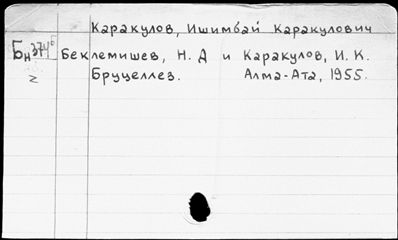 Каракулов, Ишимбай Каракулович
Бн 374б Беклемишев, Н. Д и Каракулов, И. К.
2 Бруцеллез. Алма-Ата, 1955.